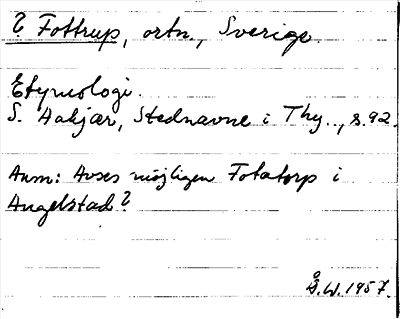 ? Fottrup, ortn., Sverige.
Etymologi.
S. Aakjær, Stednavne i Thy.., s.92.
Anm: Avses möjligen Fotatorp i
Angelstad?
Å.W. 1957.